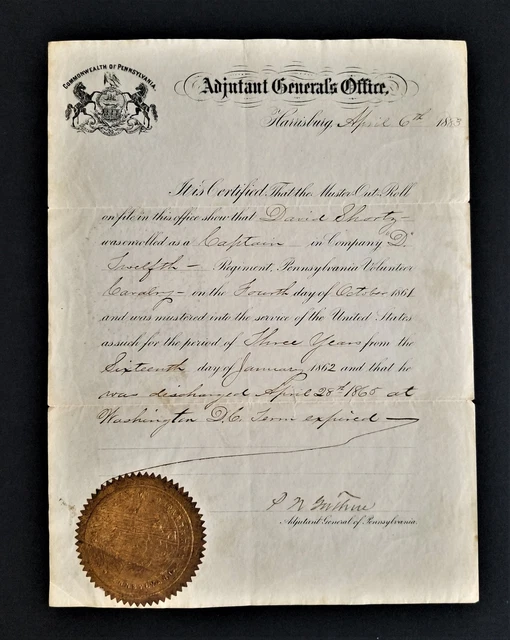 COMMONWEALTH OF PENNSYLVANIA.
Adjutant General's Office,
Harrisburg, April 6th 1883
It is Certified, That the Muster Out Roll
on file in this office show that David Shortz
was enrolled as a Captain in Company "D."
Twelfth Regiment, Pennsylvania Volunteer
Cavalry on the Fourth day of October 1861
and was mustered into the service of the United States
as such for the period of Three Years from the
Sixteenth day of January 1862 and that he
was discharged April 28th 1865 at
Washington D.C. Term expired
P N Guthrie
Adjutant General of Pennsylvania.